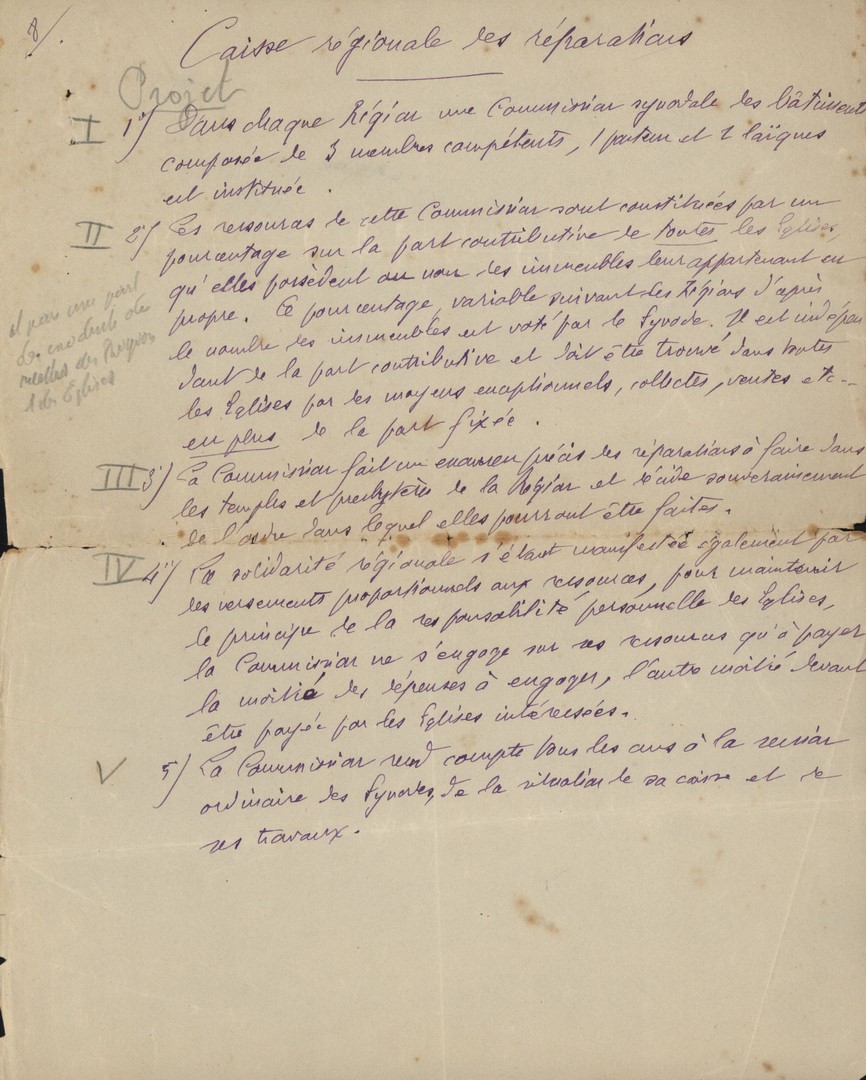 8/.
Caisse régionale des réparations
Projet
I 1°) Dans chaque Région une Commission synodale des bâtiments
composée de 3 membres compétents, 1 pasteur et 2 laïques
est instituée.
II 2°) Les ressources de cette Commission sont constituées par un
pourcentage sur la part contributive de toutes les Eglises,
qu'elles possèdent ou non des immeubles leur appartenant en
propre. Ce pourcentage, variable suivant les Régions d'après
le nombre des immeubles est voté par le Synode. Il est indépen
dant de la part contributive et doit être trouvé dans toutes
les Eglises par des moyens exceptionnels, collectes, ventes etc--
en plus de la part fixée.
et par une part
des excédents de
recettes des Régions
et des Eglises
III 3°) La Commission fait un examen précis des réparations à faire dans
les temples et presbytères de la Région et décide souverainement
de l'ordre dans lequel elles pourront être faites.
IV 4°) La solidarité régionale s'étant manifestée également par
des versements proportionnels aux ressources, pour maintenir
le principe de la responsabilité personnelle des Eglises,
la Commission ne s'engage sur ses ressources qu'à payer
la moitié des dépenses à engager, l'autre moitié devant
être payée par les Eglises intéressées.
V 5) La Commission rend compte tous les ans à la session
ordinaire des Synodes, de la situation de sa caisse et de
ses travaux.